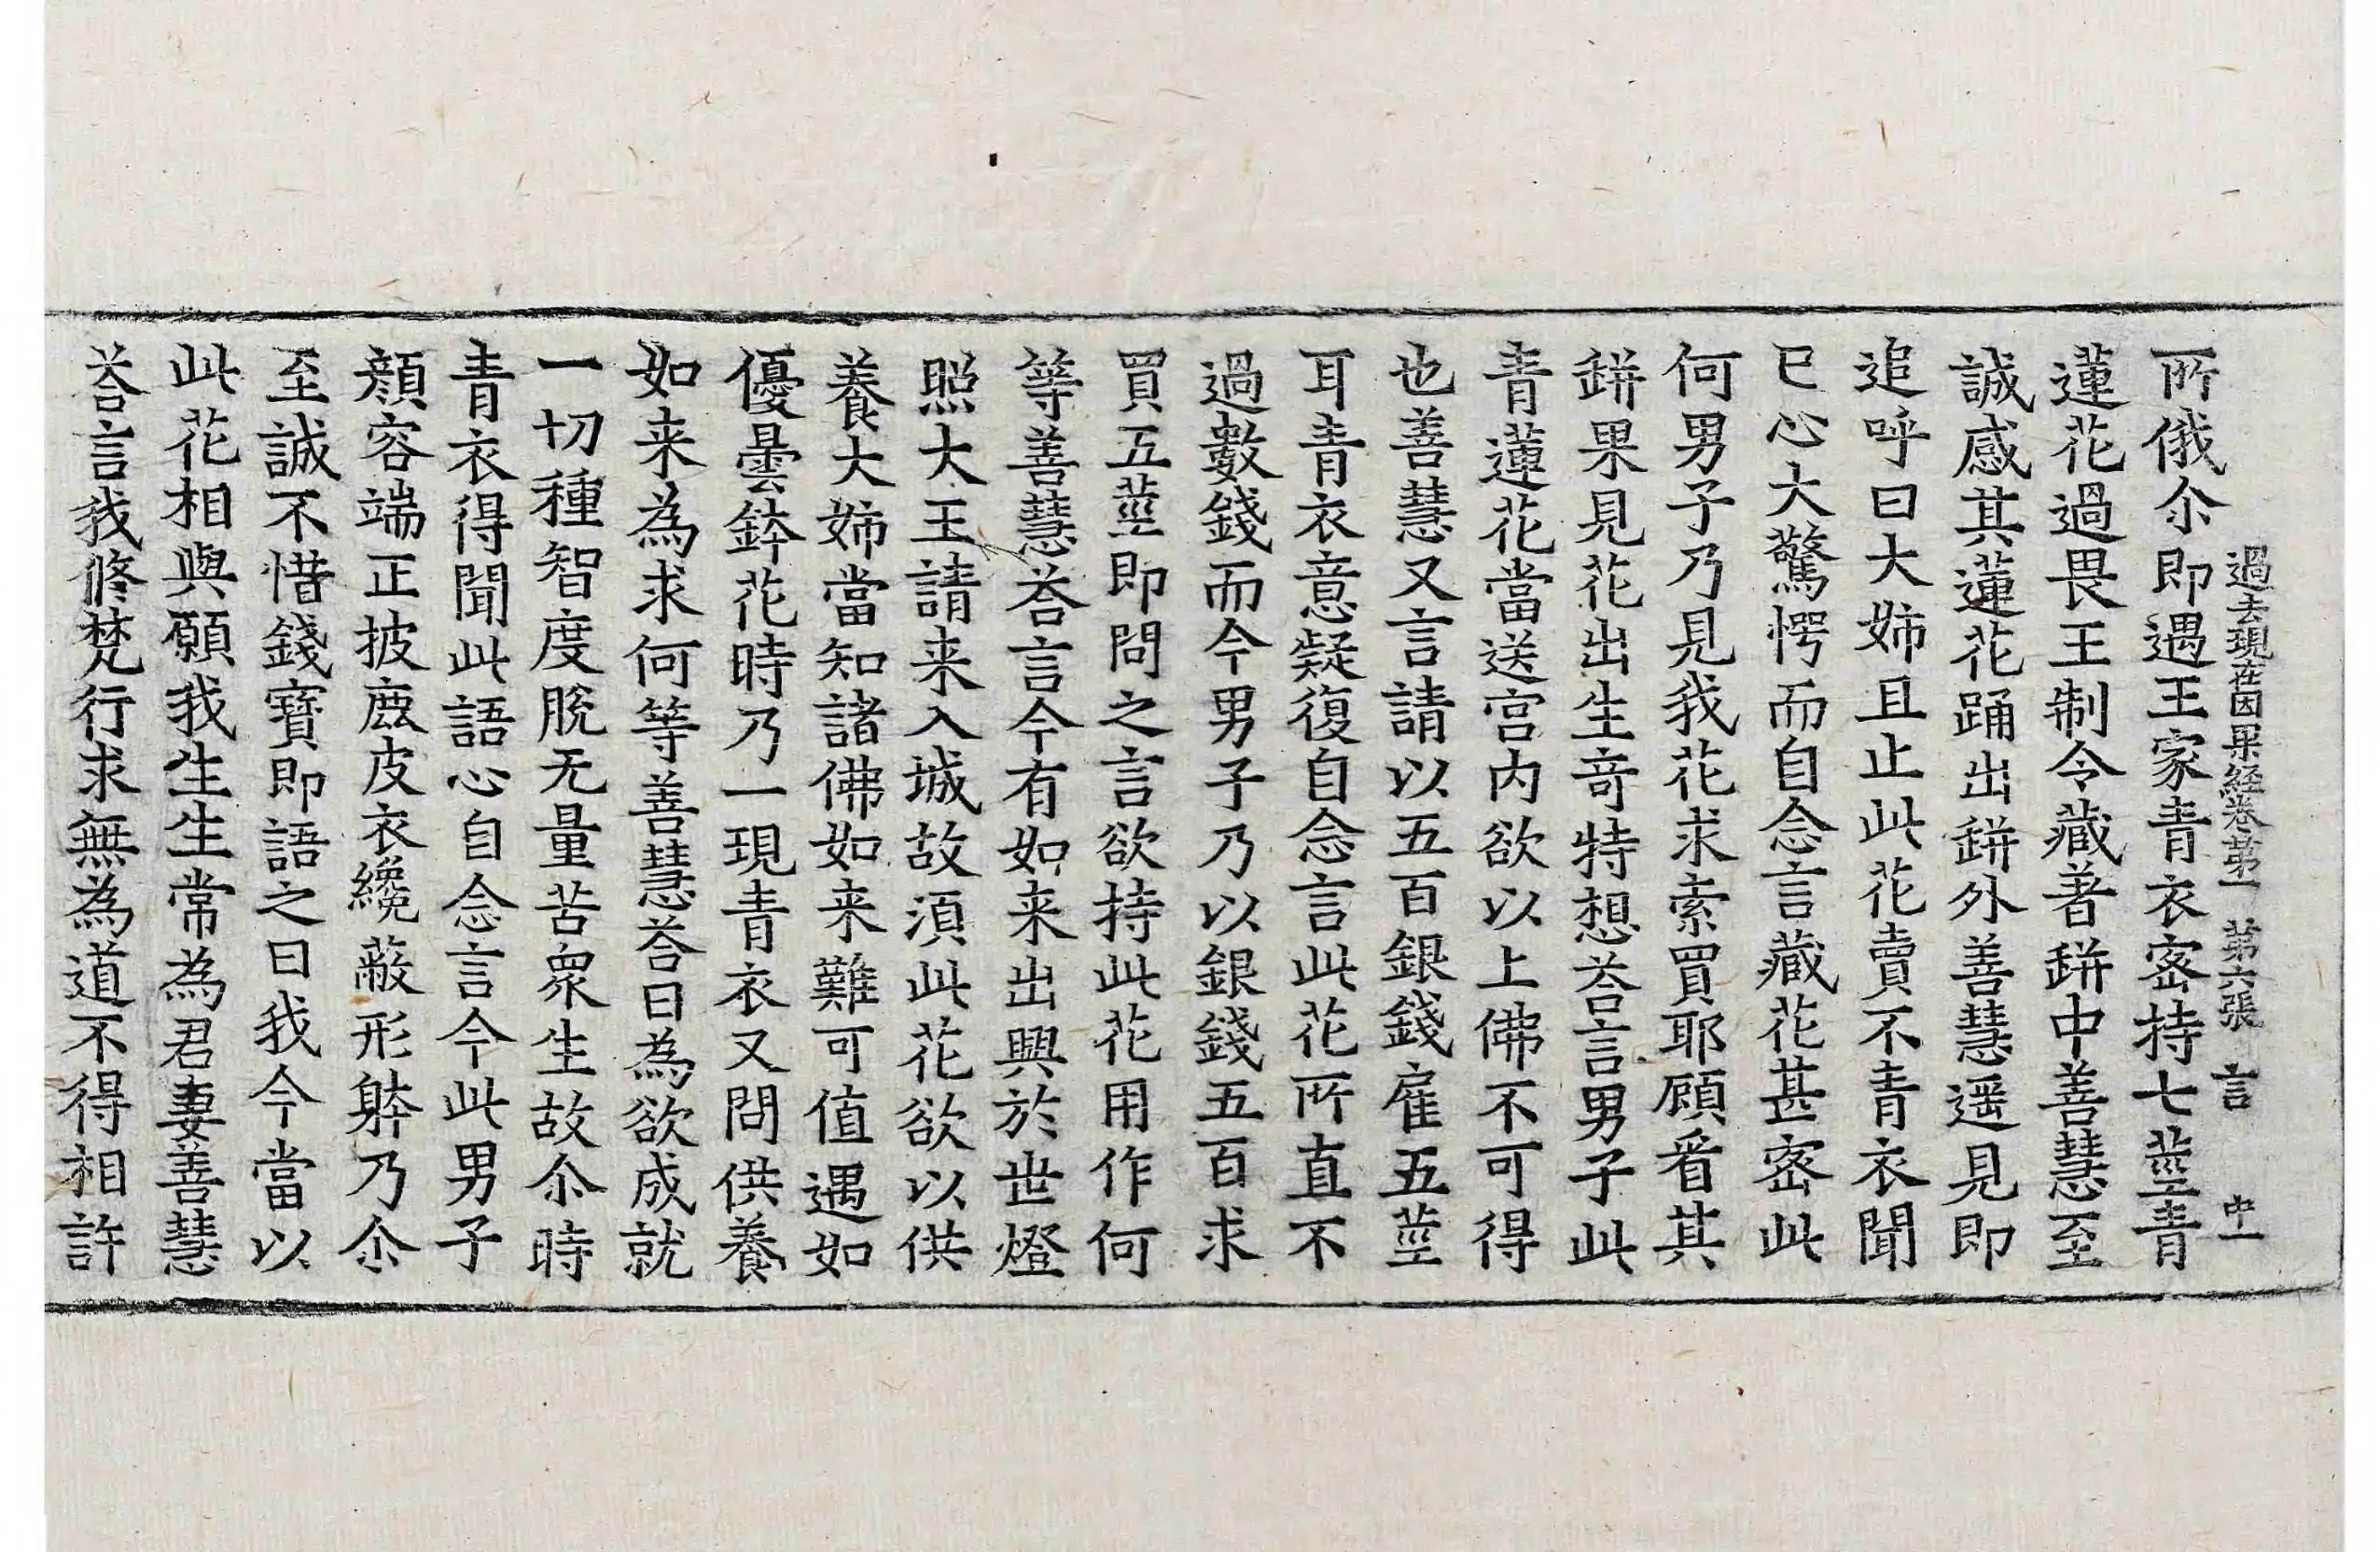 過去現在因果經卷第一　第六張　言　中一
所俄尒即遇王家青衣密持七莖青
蓮花過畏王制令藏著缾中善慧至
誠感其蓮花踊出缾外善慧遥見即
追呼曰大姉且止此花賣不青衣聞
已心大驚愕而自念言藏花甚密此
何男子乃見我花求索買耶顧看其
缾果見花出生奇特想荅言男子此
青蓮花當送宫内欲以上佛不可得
也善慧又言請以五百銀錢雇五莖
耳青衣意疑復自念言此花所直不
過數錢而今男子乃以銀錢五百求
買五莖即問之言欲持此花用作何
等善慧荅言今有如来出興於世燈
照大王請来入城故湏此花欲以供
養大姉當知諸佛如来難可值遇如
優曇鉢花時乃一現青衣又問供養
如来為求何等善慧荅曰為欲成就
一切種智度脫无量苦衆生故尒時
青衣得聞此語心自念言今此男子
顔容端正披鹿皮衣纔蔽形躰乃尒
至誠不惜錢寶即語之曰我今當以
此花相與願我生生常為君妻善慧
荅言我修梵行求無為道不得相許